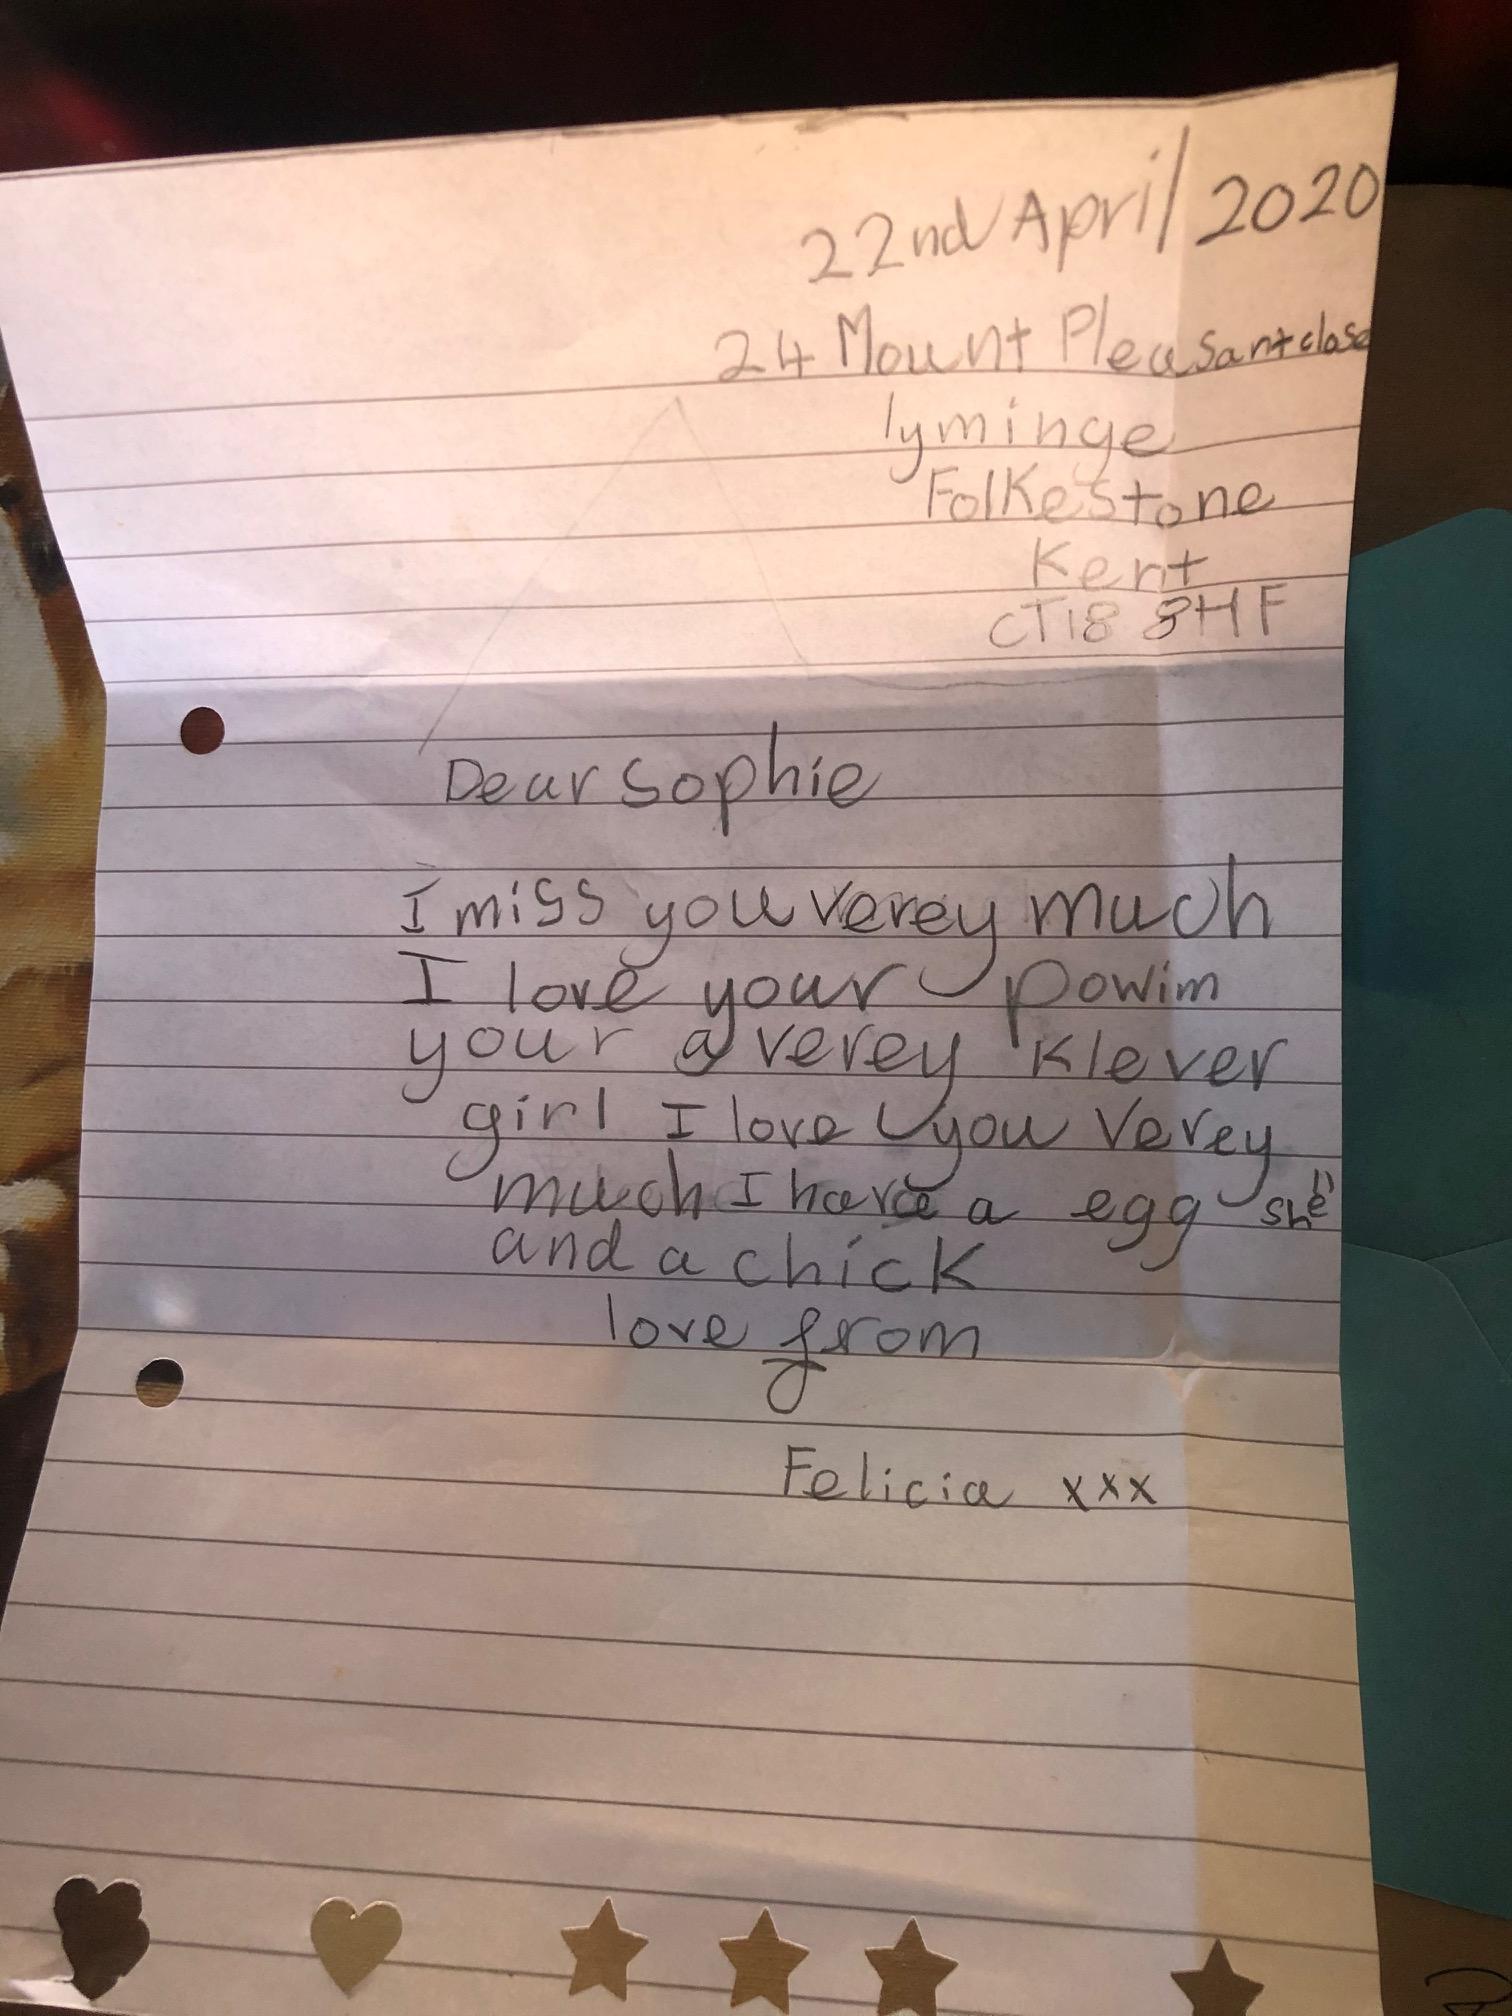 22nd April 2020
24 Mount Pleasant close
lyminge
Folkestone
Kent
CT18 8HF
Dear sophie
I miss you verey much
I love your powim
your a verey klever
girl I love you verey
much I have a egg shell
and a chick
love from
Felicia xxx